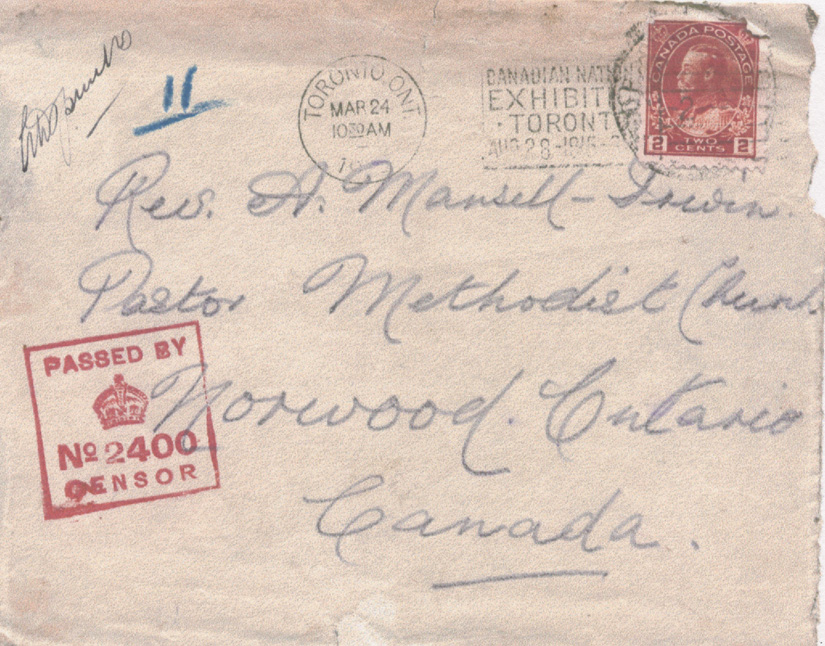 11
TORONTO, ONT.
MAR 24
10 30 AM
CANADIAN NATION
EXHIBITI
TORONT
AUG 28 - 1915 -
CANADA POSTAGE
2 TWO CENTS 2
Rev. A. Mansell-Irwin.
Pastor Methodist Church.
Norwood. Ontario
Canada.
PASSED BY
No 2400
CENSOR